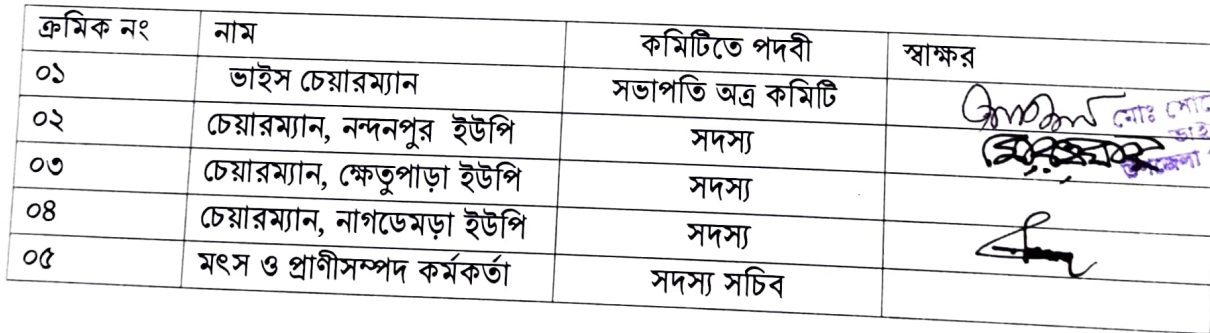 ক্রমিক নং নাম কমিটিতে পদবী স্বাক্ষর
০১ ভাইস চেয়ারম্যান সভাপতি অত্র কমিটি
০২ চেয়ারম্যান, নন্দনপুর ইউপি সদস্য
০৩ চেয়ারম্যান, ক্ষেতুপাড়া ইউপি সদস্য
০৪ চেয়ারম্যান, নাগডেমড়া ইউপি সদস্য
০৫ মৎস ও প্রাণীসম্পদ কর্মকর্তা সদস্য সচিব
মোঃ